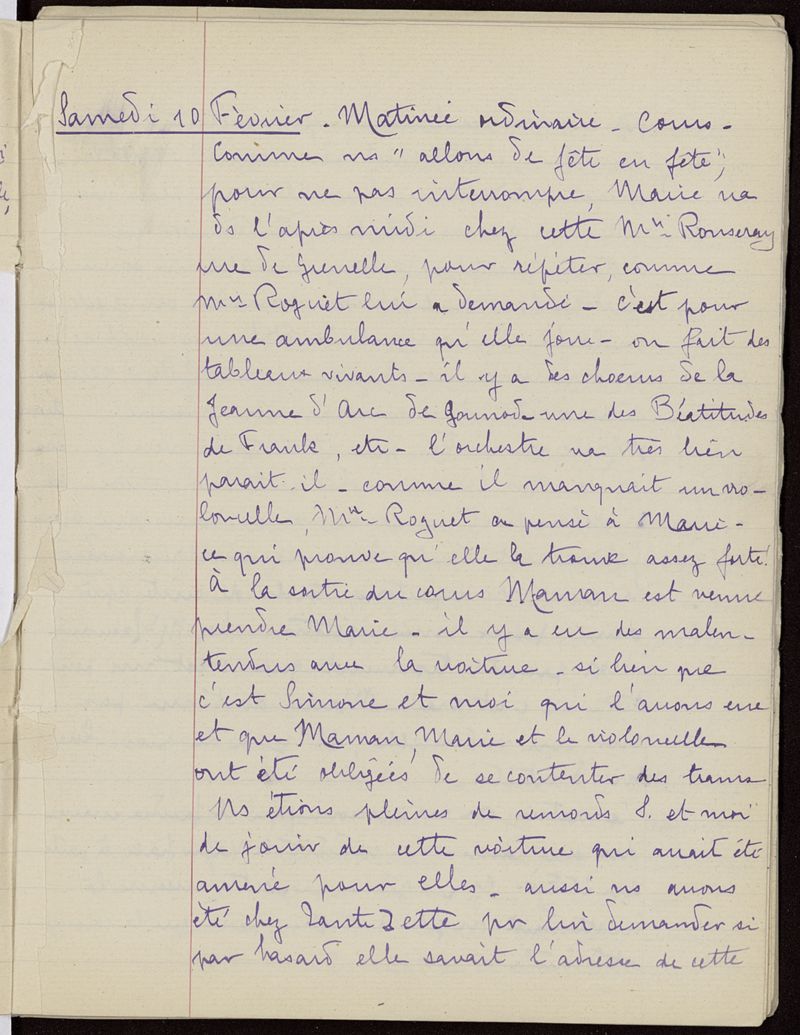 Samedi 10 Février - Matinée ordinaire - Cours -
Comme ns "allons de fête en fête",
pour ne pas interrompre, Marie va
ds l'après midi chez cette Mme Ronseray
rue de Grenelle, pour répéter, comme
Mme Roguet lui a demandé - c'est pour
une ambulance qu'elle joue - on fait des
tableaux vivants - il y a des choeurs de la
Jeanne d'Arc de Gounod - une des Béatitudes
de Frank, etc - l'orchestre va très bien
parait-il - comme il manquait un vio-
loncelle, Mme Roguet a pensé à Marie -
ce qui prouve qu'elle la trouve assez forte!
A la sortie du cours Maman est venue
prendre Marie - il y a eu des malen-
tendus avec la voiture - si bien que
c'est Simone et moi qui l'avons eue
et que Maman, Marie et le violoncelle
ont été obligées de se contenter des trams
Ns étions pleines de remords S. et moi
de jouir de cette voiture qui avait été
amené pour elles - aussi ns avons
été chez Tante Zette pr lui demander si
par hasard elle savait l'adresse de cette